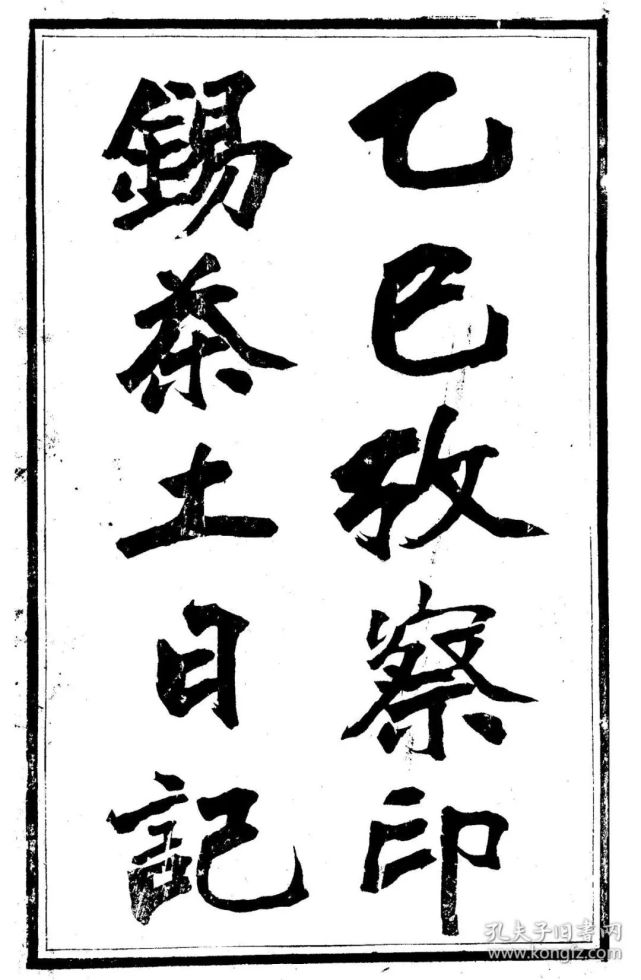 乙巳攷察印
錫茶土日記
孔夫子旧书网
www.kongfz.com